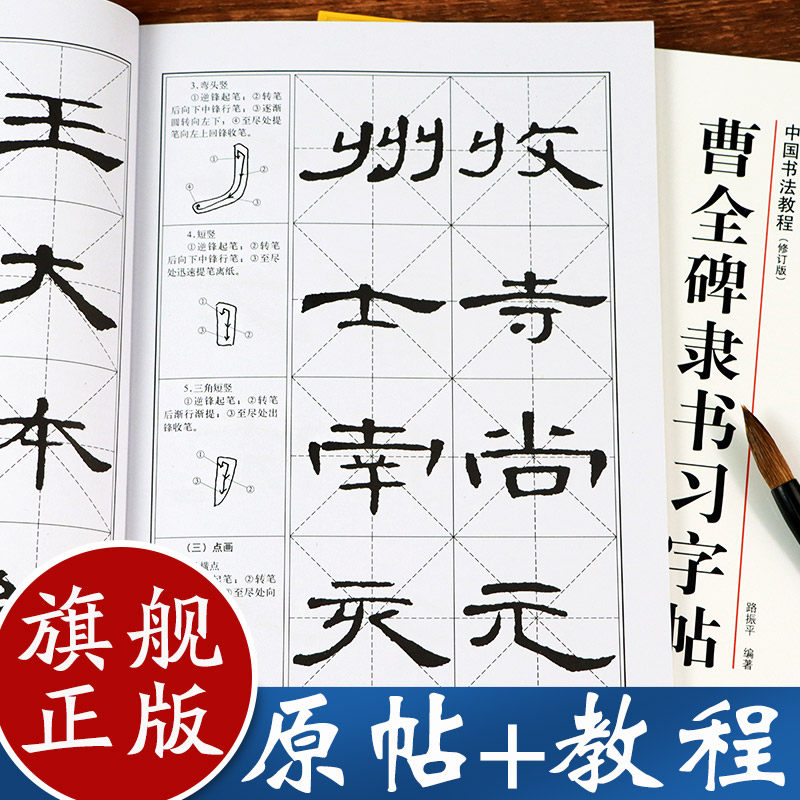 王
大
本
3.弯头竖
①逆锋起笔；②转笔
后向下中锋行笔；③逐渐
圆转向左下；④至尽处提
笔向左上回锋收笔。
①
②
④
③
4.短竖
①逆锋起笔；②转笔
后向下中锋行笔；③至尽
处迅速提笔离纸。
①
②
③
5.三角短竖
①逆锋起笔；②转笔
后渐行渐提；③至尽处出
锋收笔。
①
②
③
（三）点画
横点
起笔；②转笔
③至尽处向
州 收
士 寺
南 尚
元
中国书法教程（修订版）
曹全碑隶书习字帖
路振平 编著
旗舰
正版
原帖+教程